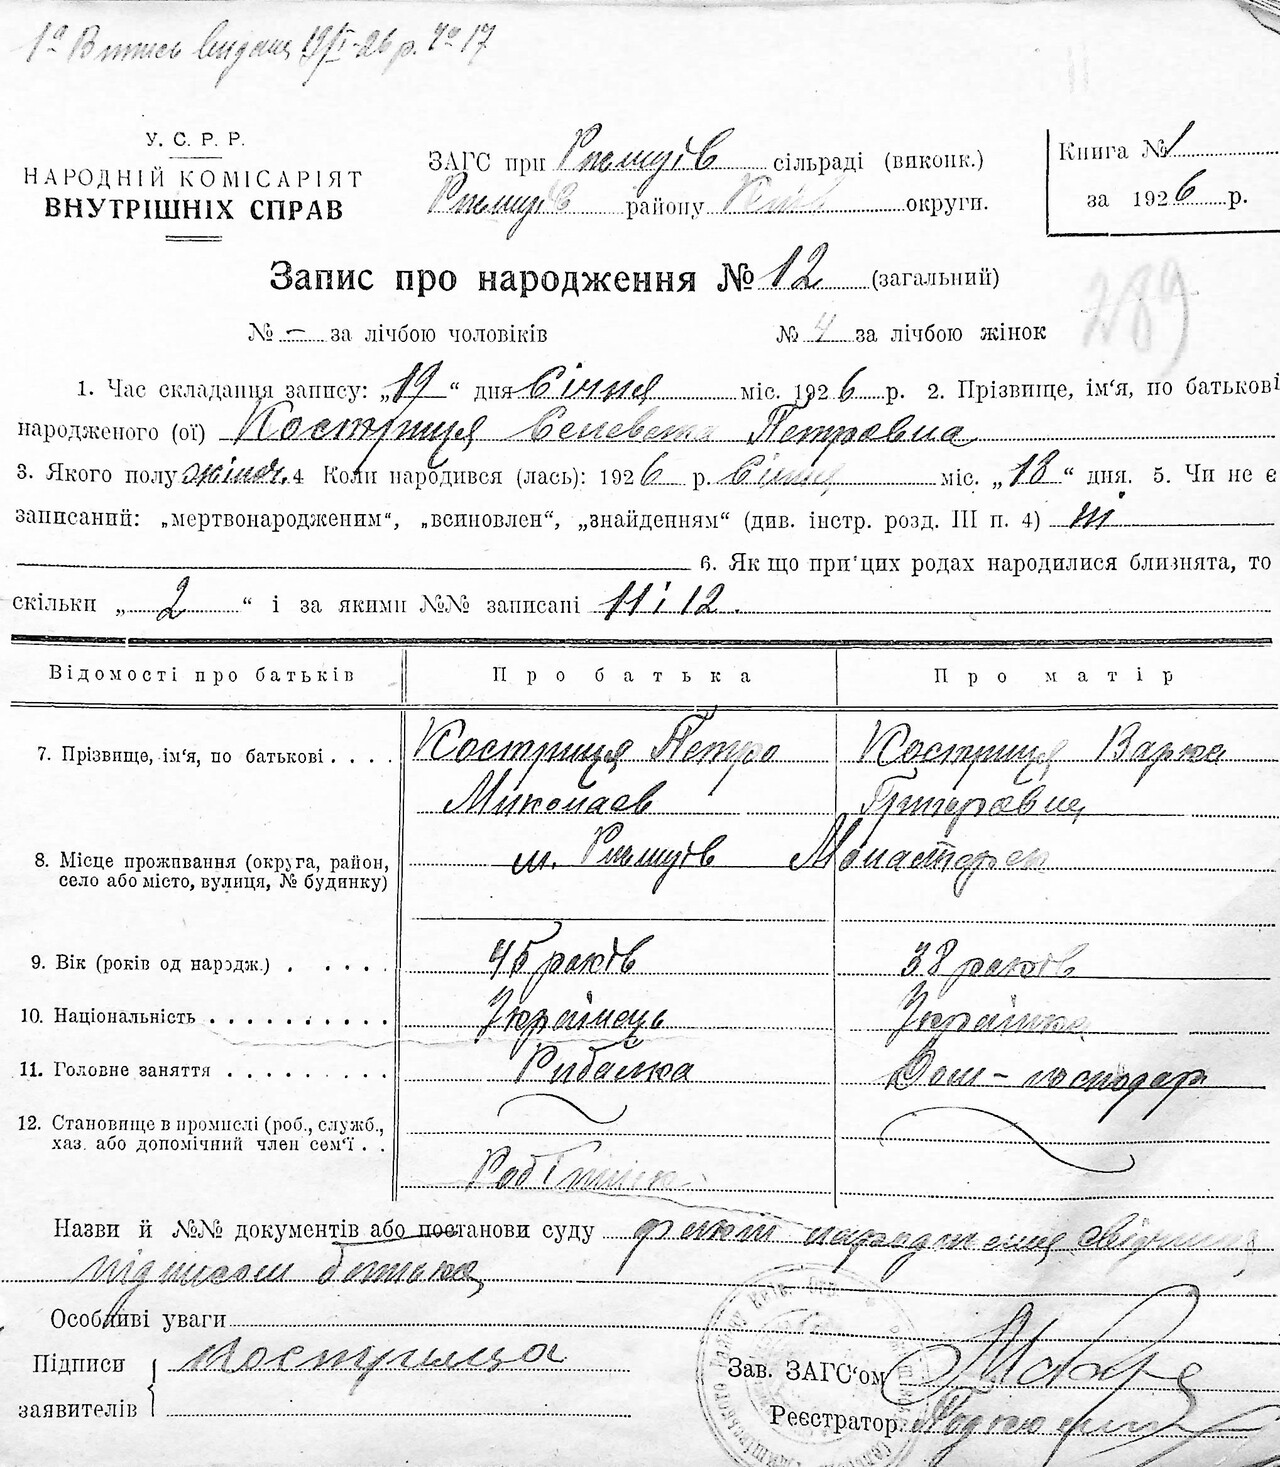 1а Витись видана 19/I-26 р. № 17
У. С. Р. Р.
НАРОДНІЙ КОМІСАРІЯТ
ВНУТРІШНІХ СПРАВ
ЗАГС при Ржищів сільраді (виконк.)
Ржищів району Київ округи.
Книга № 1
за 1926 р.
Запис про народження № 12 (загальний)
№ – за лічбою чоловіків № 4 за лічбою жінок
289
1. Час складання запису: „19“ дня Січня міс. 1926 р. 2. Прізвище, ім‘я, по батькові
народженого (ої) Костриця Єлисвета Петровна
3. Якого полу жіноч. 4 Коли народився (лась): 1926 р. Січня міс. „18“ дня. 5. Чи не є
записаний: „мертвонародженим“, „всиновлен“, „знайденням“ (див. інстр. розд. III п. 4) ні
6. Як що при цих родах народилися близнята, то
скільки „ 2 “ і за якими №№ записані 11 і 12.
Відомості про батьків Про батька Про матір
7. Прізвище, ім‘я, по батькові Костриця Петро Костриця Варка
Миколаєв Григоровна
8. Місце проживання (округа, район, село або місто, вулиця, № будинку) м. Ржищів Монастирок
9. Вік (років од народж.) 45 років 38 років
10. Національність Українець Українка
11. Головне заняття Рибалка Дом-господар
12. Становище в промислі (роб., служб.,
хаз. або допомічний член сем‘ї
Робітник
Назви й №№ документів або постанови суду факт народження свідчить
підписом батька
Особливі уваги
Підписи Костриця
заявителів
Зав. ЗАГС‘ом
Реєстратор